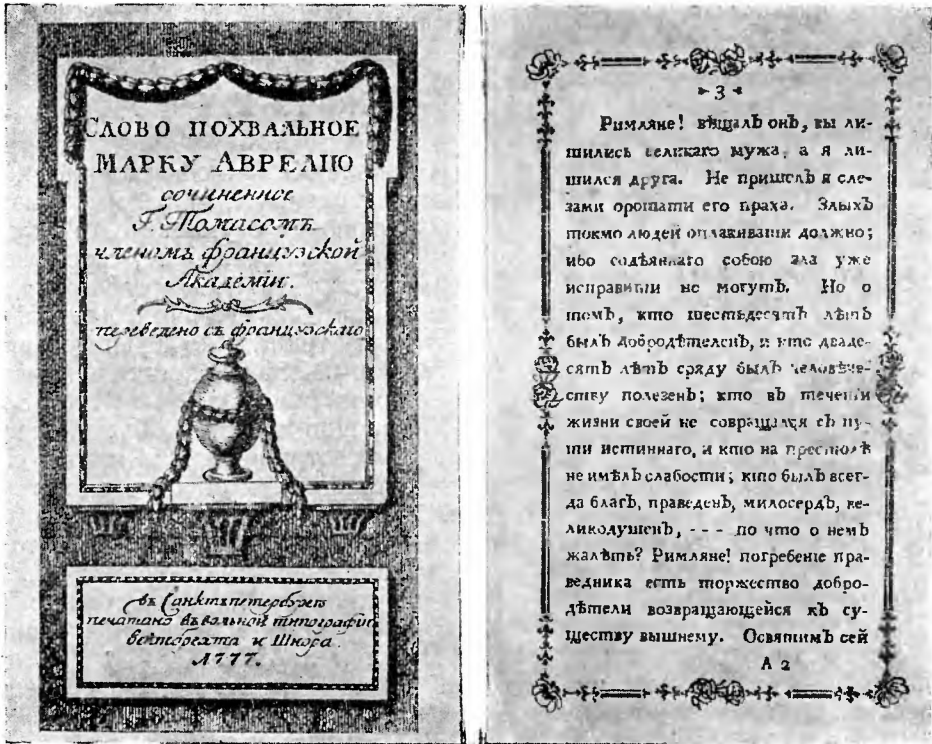 СЛОВО ПОХВАЛЬНОЕ
МАРКУ АВРЕЛІЮ
сочиненное
Г. Томасомъ
членомъ французской
Академіи.
переведено съ французскаго
въ Санктпетербургѣ
печатано въ вольной типографіи
Вейтбрехта и Шнора
1777.
3
Римляне! вѣщалъ онъ, вы ли-
шились великаго мужа, а я ли-
шился друга. Не пришелъ я сле-
зами орошати его праха. Злыхъ
токмо людей оплакивати должно;
ибо содѣяннаго собою зла уже
исправити не могутъ. Но о
томъ, кто шестьдесятъ лѣтъ
былъ добродѣтеленъ, и кто двадe-
сять лѣтъ сряду былъ человѣче-
ству полезенъ; кто въ теченіи
жизни своей не совращался съ пу-
ти истиннаго, и кто на престолѣ
не имѣлъ слабости; кто былъ всег-
да благъ, праведенъ, милосердъ, ве-
ликодушенъ, - - - по что о немъ
жалѣть? Римляне! погребеніе пра-
ведника есть торжество добро-
дѣтели возвращающейся къ су-
ществу вышнему. Освятимъ сей
А 2